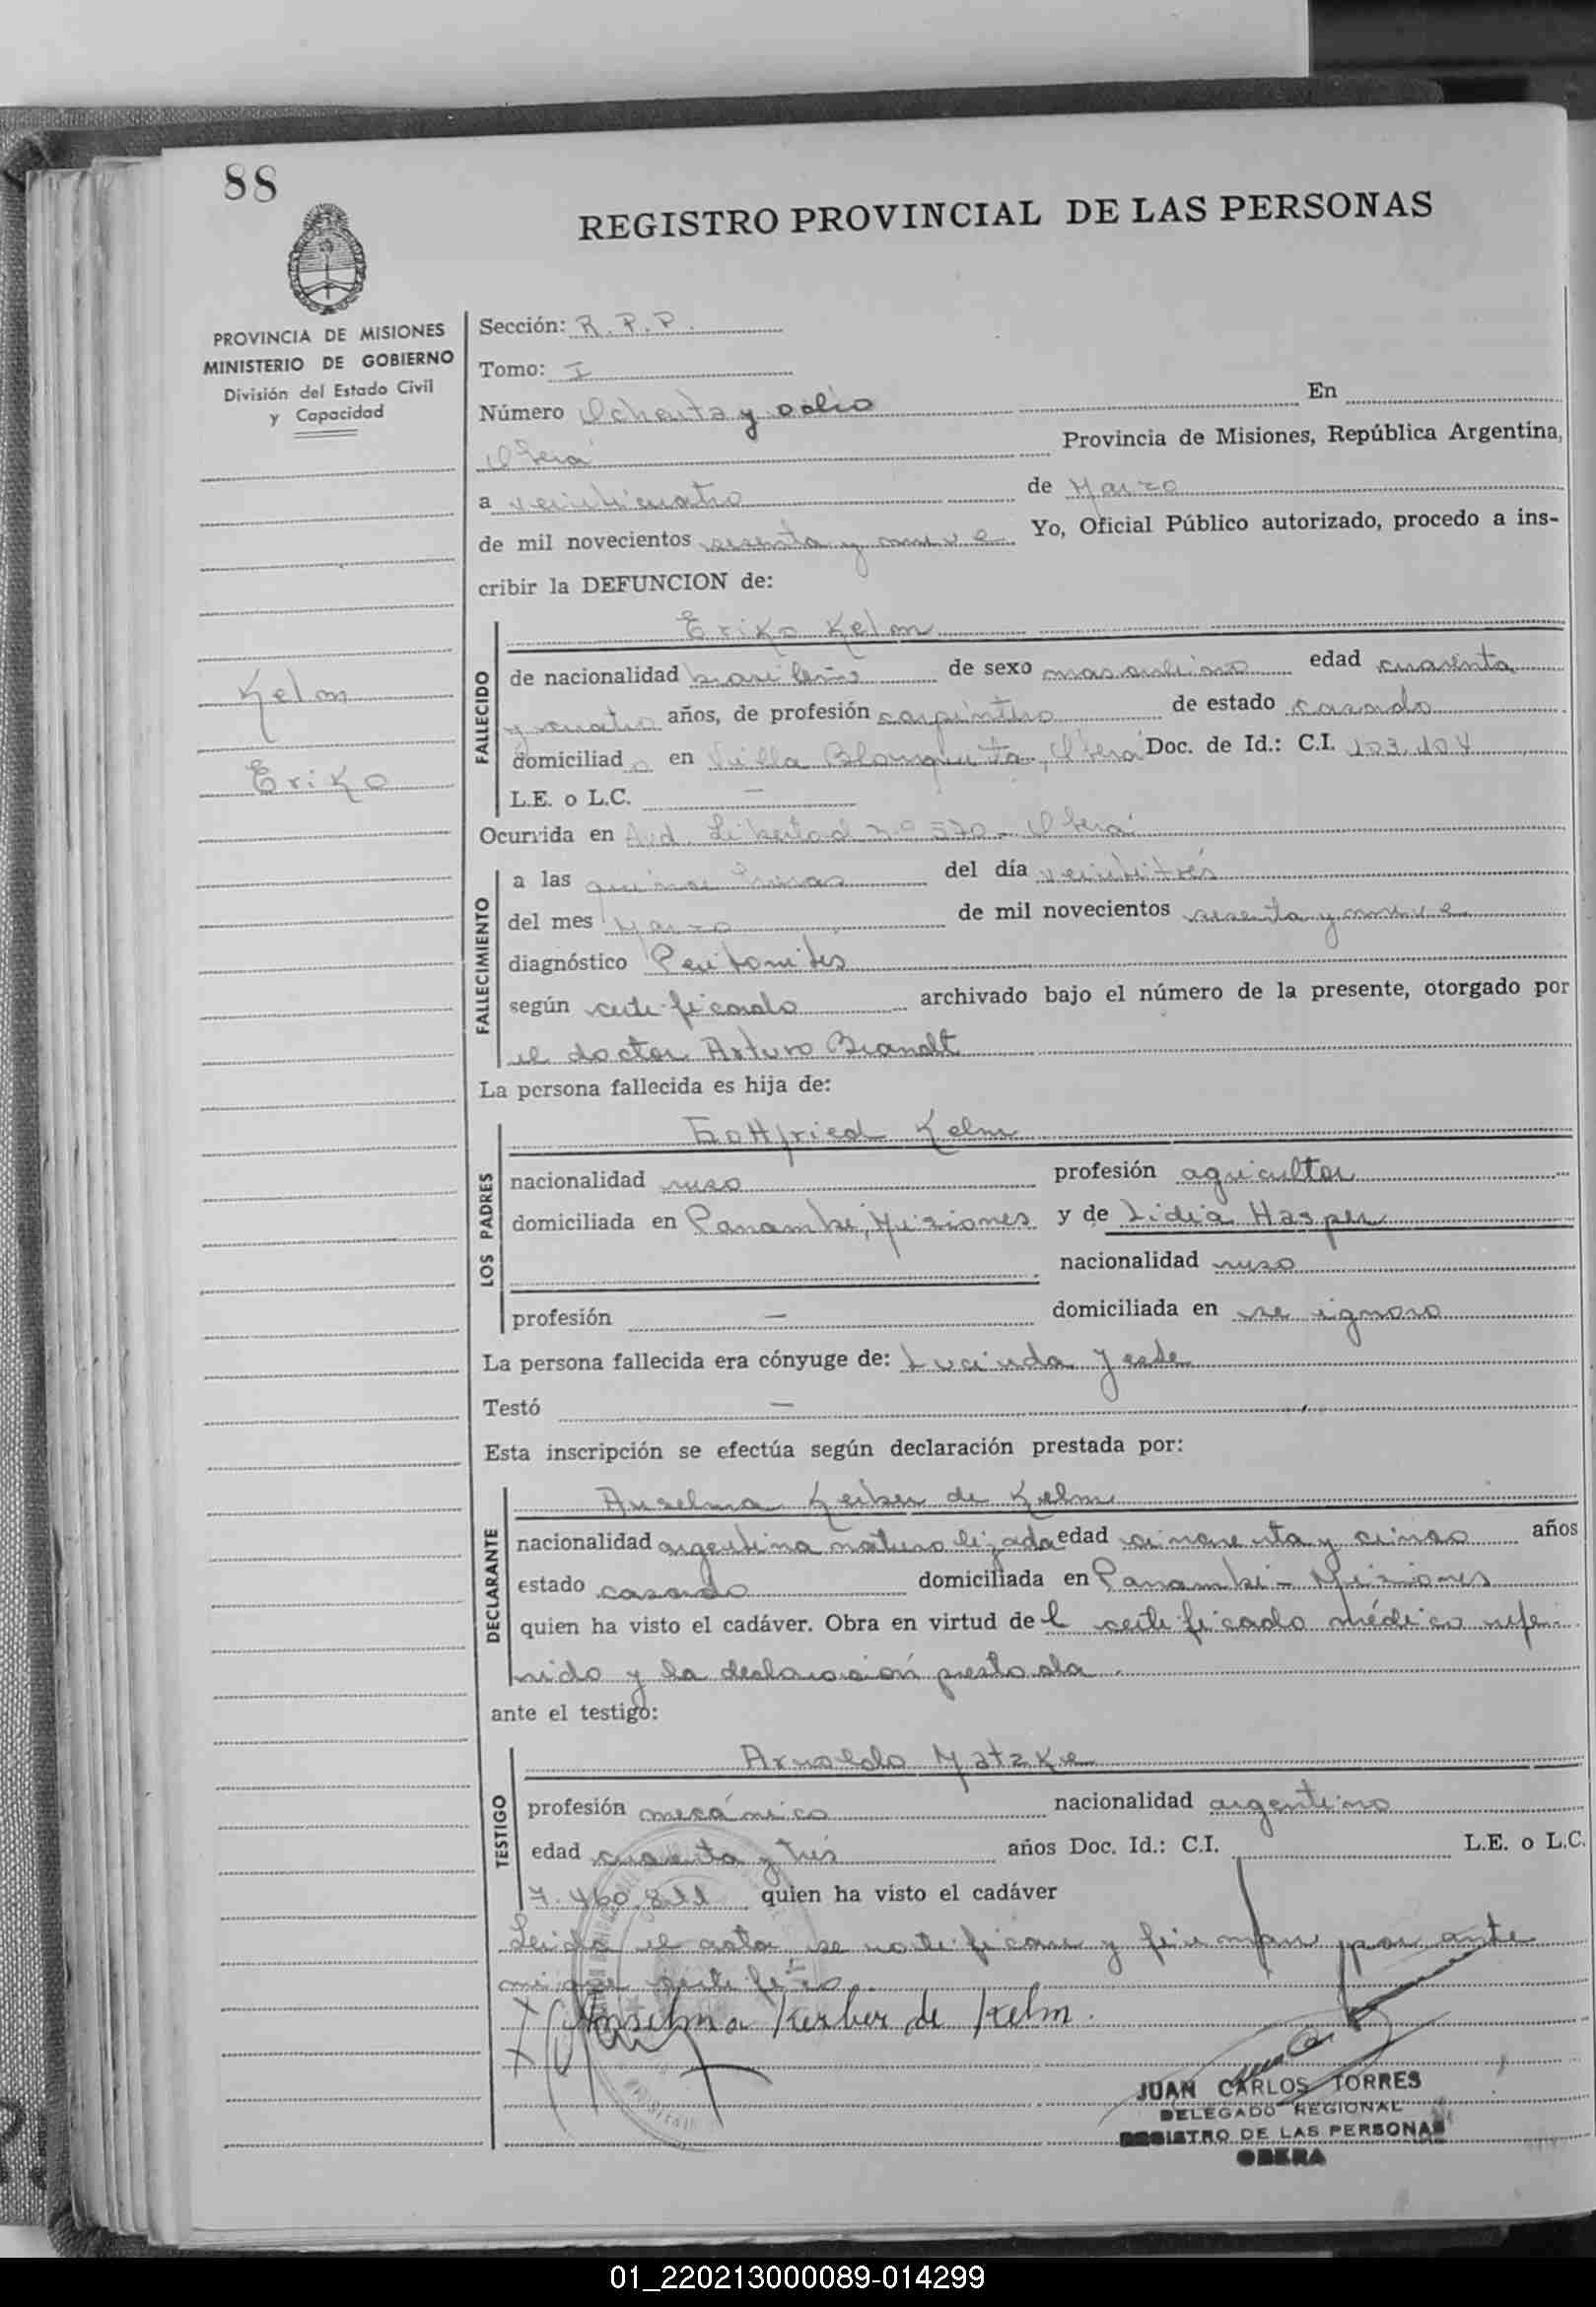 88
REGISTRO PROVINCIAL DE LAS PERSONAS
PROVINCIA DE MISIONES
MINISTERIO DE GOBIERNO
División del Estado Civil
y Capacidad
Kelm
Eriko
Sección: R.P.P.
Tomo: I
Número Ochenta y ocho En
Oberá Provincia de Misiones, República Argentina,
a veinticuatro de Marzo
de mil novecientos sesenta y nueve Yo, Oficial Público autorizado, procedo a ins-
cribir la DEFUNCION de:
FALLECIDO
Eriko Kelm
de nacionalidad brasileño de sexo masculino edad cuarenta
y cuatro años, de profesión carpintero de estado casado
domiciliad o en Villa Blanquita, Oberá Doc. de Id.: C.I. 103.104
L.E. o L.C. —
Ocurrida en Avd. Libertad nº 570 - Oberá
FALLECIMIENTO
a las quince horas del día veintitrés
del mes Marzo de mil novecientos sesenta y nueve
diagnóstico Peritonitis
según certificado archivado bajo el número de la presente, otorgado por
el doctor Arturo Brandt
La persona fallecida es hija de:
LOS PADRES
Gottfried Kelm
nacionalidad ruso profesión agricultor
domiciliada en Panambi, Misiones y de Lidia Hasper
nacionalidad ruso
profesión — domiciliada en se ignora
La persona fallecida era cónyuge de: Lucinda
Testó —
Esta inscripción se efectúa según declaración prestada por:
DECLARANTE
Anselma Kerber de Kelm
nacionalidad argentina naturalizada edad cincuenta y cinco años
estado casado domiciliada en Panambi - Misiones
quien ha visto el cadáver. Obra en virtud de l certificado médico refe-
rido y la declaración prestada
ante el testigo:
TESTIGO
Arnoldo Matzke
profesión mecánico nacionalidad argentino
edad cuarenta y trés años Doc. Id.: C.I. L.E. o L.C.
7.460.811 quien ha visto el cadáver
Leida el acta se ratifican y firman por ante
mi que certifico
Anselma Kerber de Kelm.
JUAN CARLOS TORRES
DELEGADO REGIONAL
REGISTRO DE LAS PERSONAS
OBERA
01_220213000089-014299